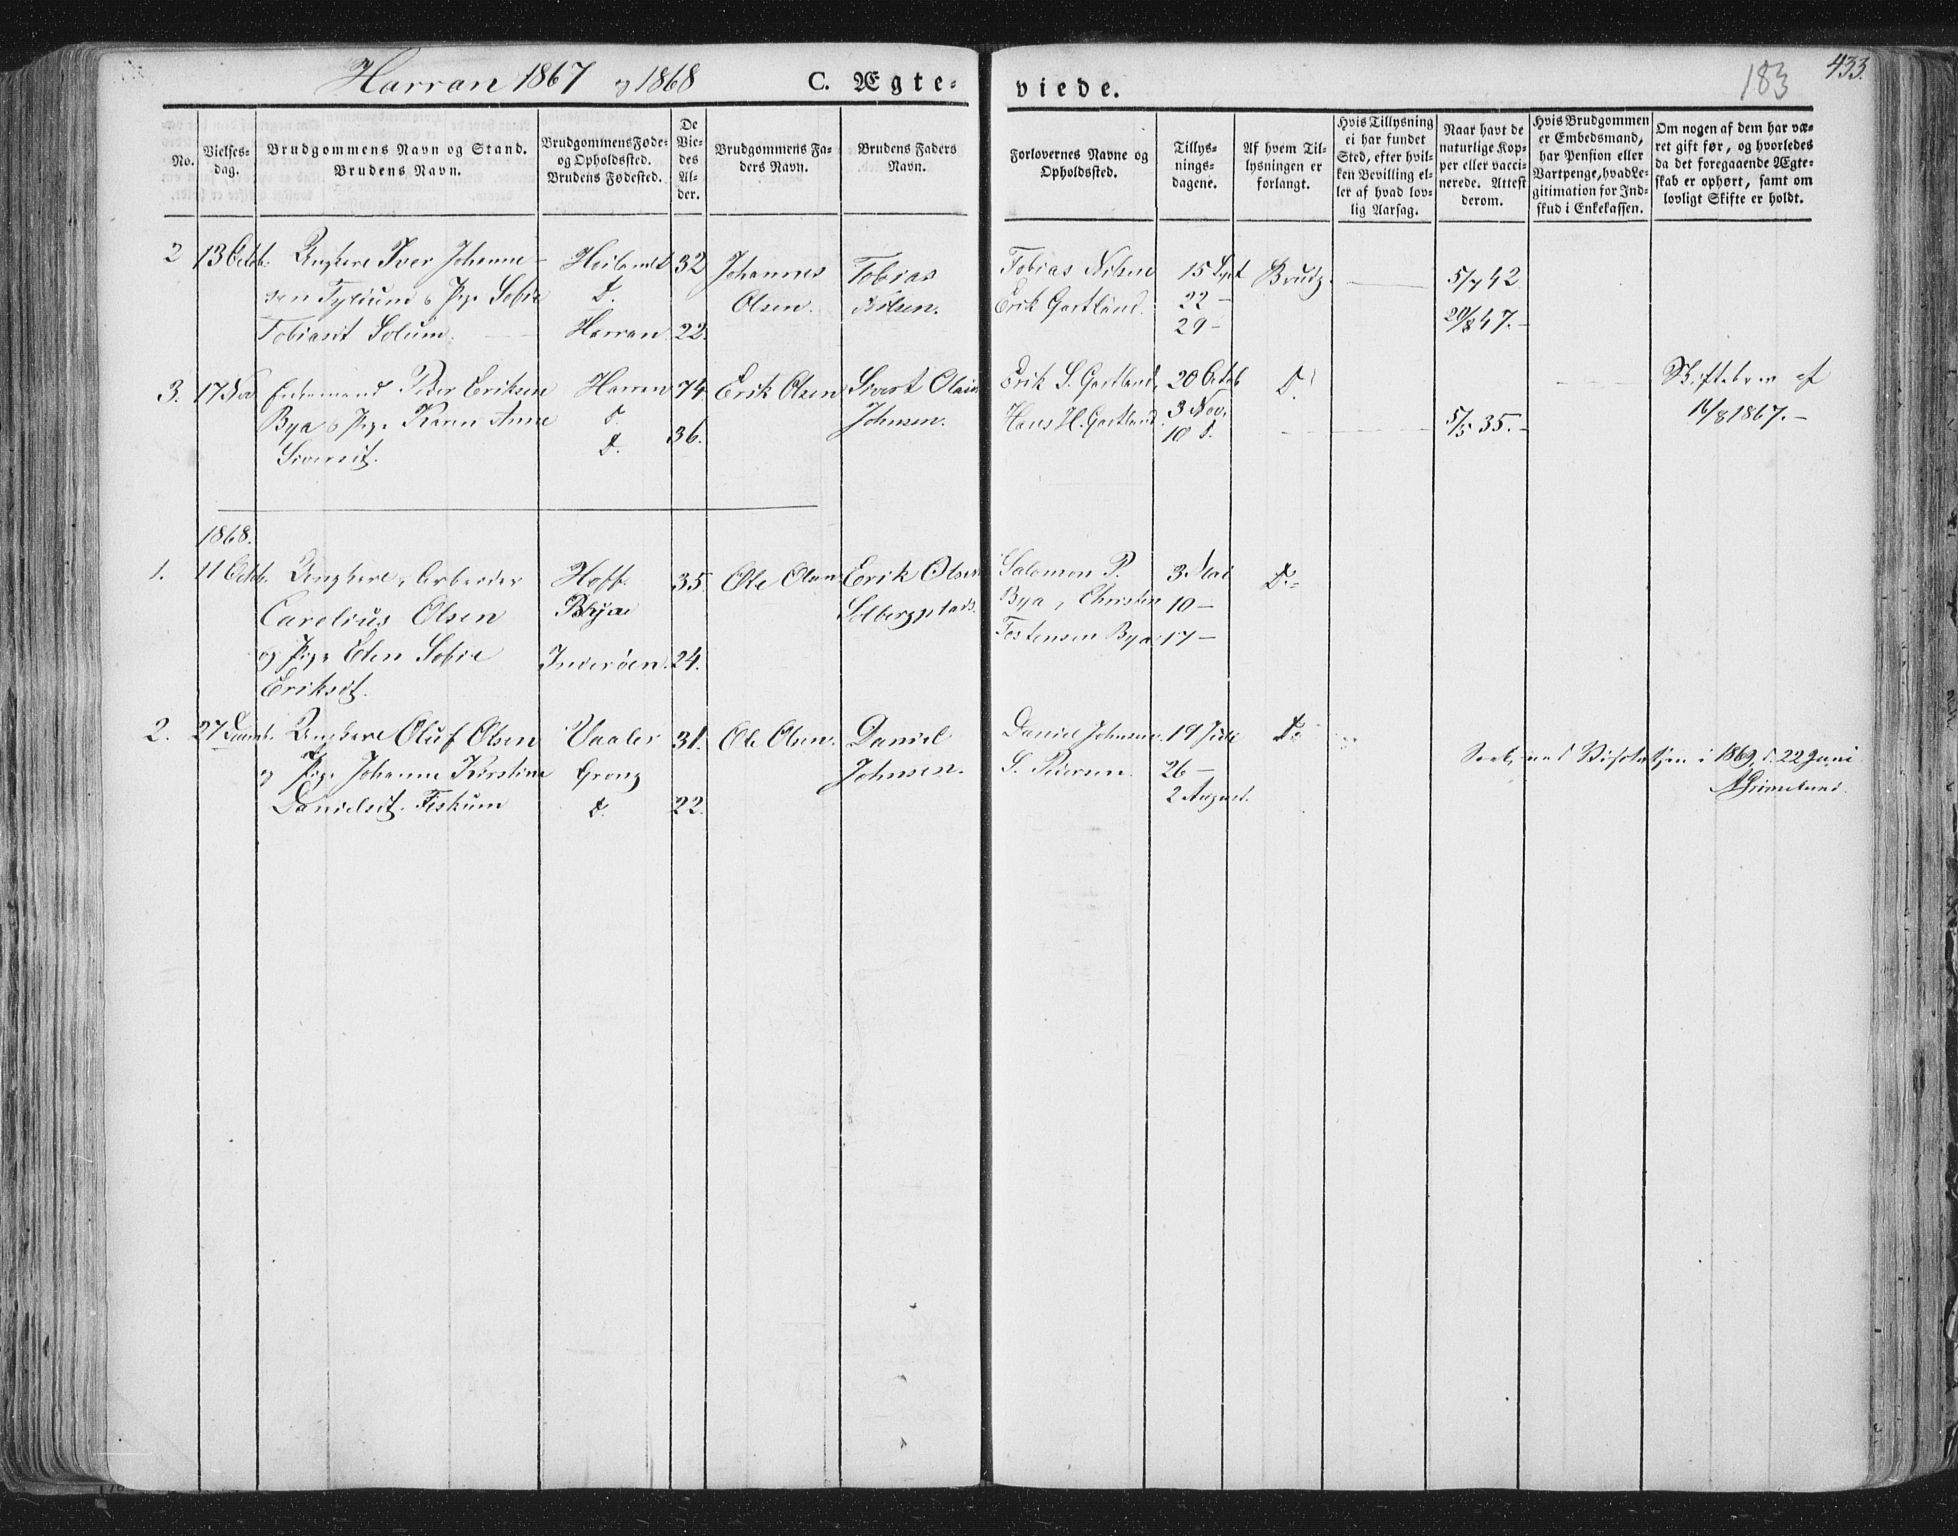 Harran 1867 og 1868
C. Ægte-
viede.
183
433.
No.
Vielses-
dag.
Brudgommens Navn og Stand.
Brudens Navn.
Brudgommens Føde-
og Opholdssted.
Brudens Fødested.
De
Vie-
des
Al-
der.
Brudgommens Fa-
ders Navn.
Brudens Faders
Navn.
Forlovernes Navne og
Opholdssted.
Tillys-
nings-
dagene.
Af hvem Til-
lysningen er
forlangt.
Hvis Tillysning
ei har fundet
Sted, efter hvil-
ken Bevilling el-
ler af hvad lov-
lig Aarsag.
Naar havt de
naturlige Kop-
per eller vacci-
nerede. Attest
derom.
Hvis Brudgommen
er Embedsmand,
har Pension eller
Vartpenge, hvad Le-
gitimation for Ind-
skud i Enkekassen.
Om nogen af dem har væ-
ret gift før, og hvorledes
da det foregaaende Ægte-
skab er ophørt, samt om
lovligt Skifte er holdt.
2
13 Octob.
Ungkarl Iver Johanne-
sen & Pige Sofie
Tobiasdt Solum.
D.
Harran
32
22.
Johannes
Olsen.
Tobias
Nilsen.
Tobias Nilsen
Erik Gartland.
15 Sept
22 -
29 -
Brudg.
5/7 42
20/8 47. -
3.
17 Nov
Enkemand Peder Eriksen
Bya & Pige Karen Anne
Siversdt.
Harran
D.
D.
74.
36.
Erik Olsen
Sivert
Johnsen.
Erik S. Gartland,
Hans H. Gartland.
20 Octob
3 Nov.
10 D.
D.
5/5 35. -
Skiftebrev af
16/8 1867. -
1868.
1.
11 Octob.
Ungkarl, Arbeider
Carelius Olsen
og Pige Elen Sofie
Eriksdt.
Hoff
Bya
Inderøen.
35.
24.
Ole Olsen
Erik Olsen
Solbergplads.
Salomon P.
Bya, Christen
Tostensen Bya
3 Mai
10 -
17 -
D.
2.
27 Decemb.
Ungkarl Oluf Olsen
og Pige Johanna Kirstine
Danielsdt. Fiskum
Vaaler
Grong
D.
31.
22.
Ole Olsen.
Daniel
Johnsen.
Daniel Johnsen
S. Pedersen.
19 Juli
26 -
2 August.
D.
Seet ved Visitatsen i 1869, d. 22 Juni